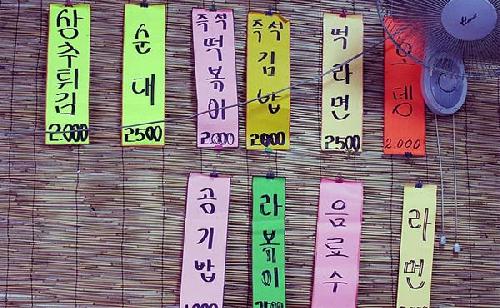 상추튀김 2000
순대 2500
즉석 떡볶이 2000
즉석 김밥 2000
떡라면 2500
오뎅 2.000
공기밥
라볶이
음료수
라면